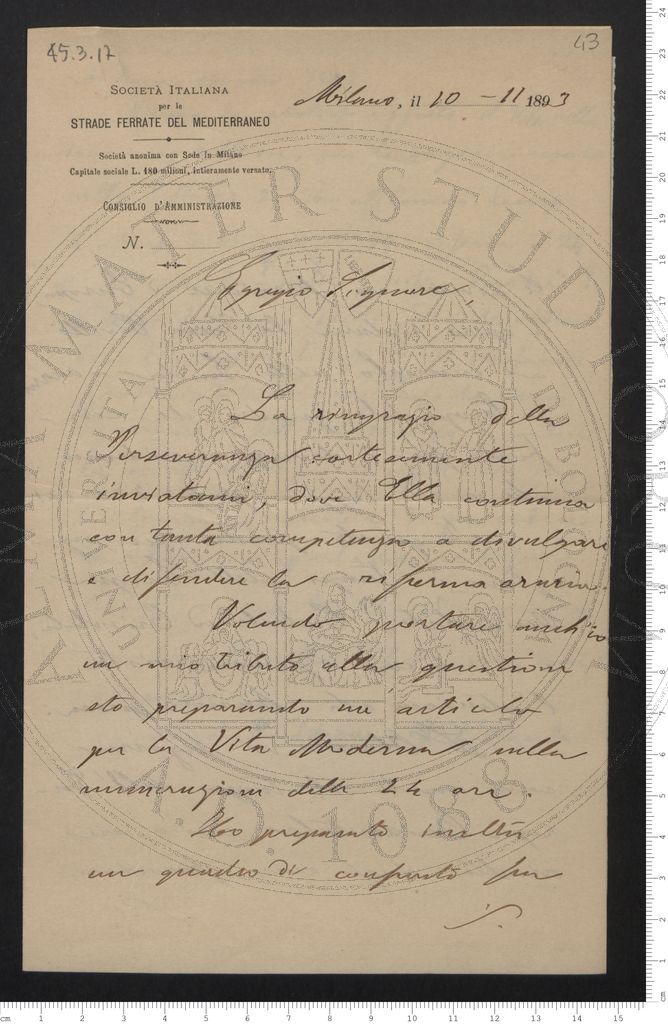 45.3.17
43
SOCIETÀ ITALIANA
per le
STRADE FERRATE DEL MEDITERRANEO
Società anonima con Sede in Milano
Capitale sociale L. 180 milioni, intieramente versato.
CONSIGLIO D'AMMINISTRAZIONE
N.
Milano, il 10 - 11 1893
Egregio Signore,
La ringrazio della
Perseveranza cortesemente
inviatami, dove Ella continua
con tanta competenza a divulgare
e difendere la riforma oraria.
Volendo portare anch'io
un mio tributo alla questione
sto preparando un articolo
per la Vita Moderna sulla
numerazione delle 24 ore.
Ho preparato inoltre
un quadro di confronto fra
ALMA MATER STUDIORUM
UNIVERSITA DI BOLOGNA
A.D. 1088